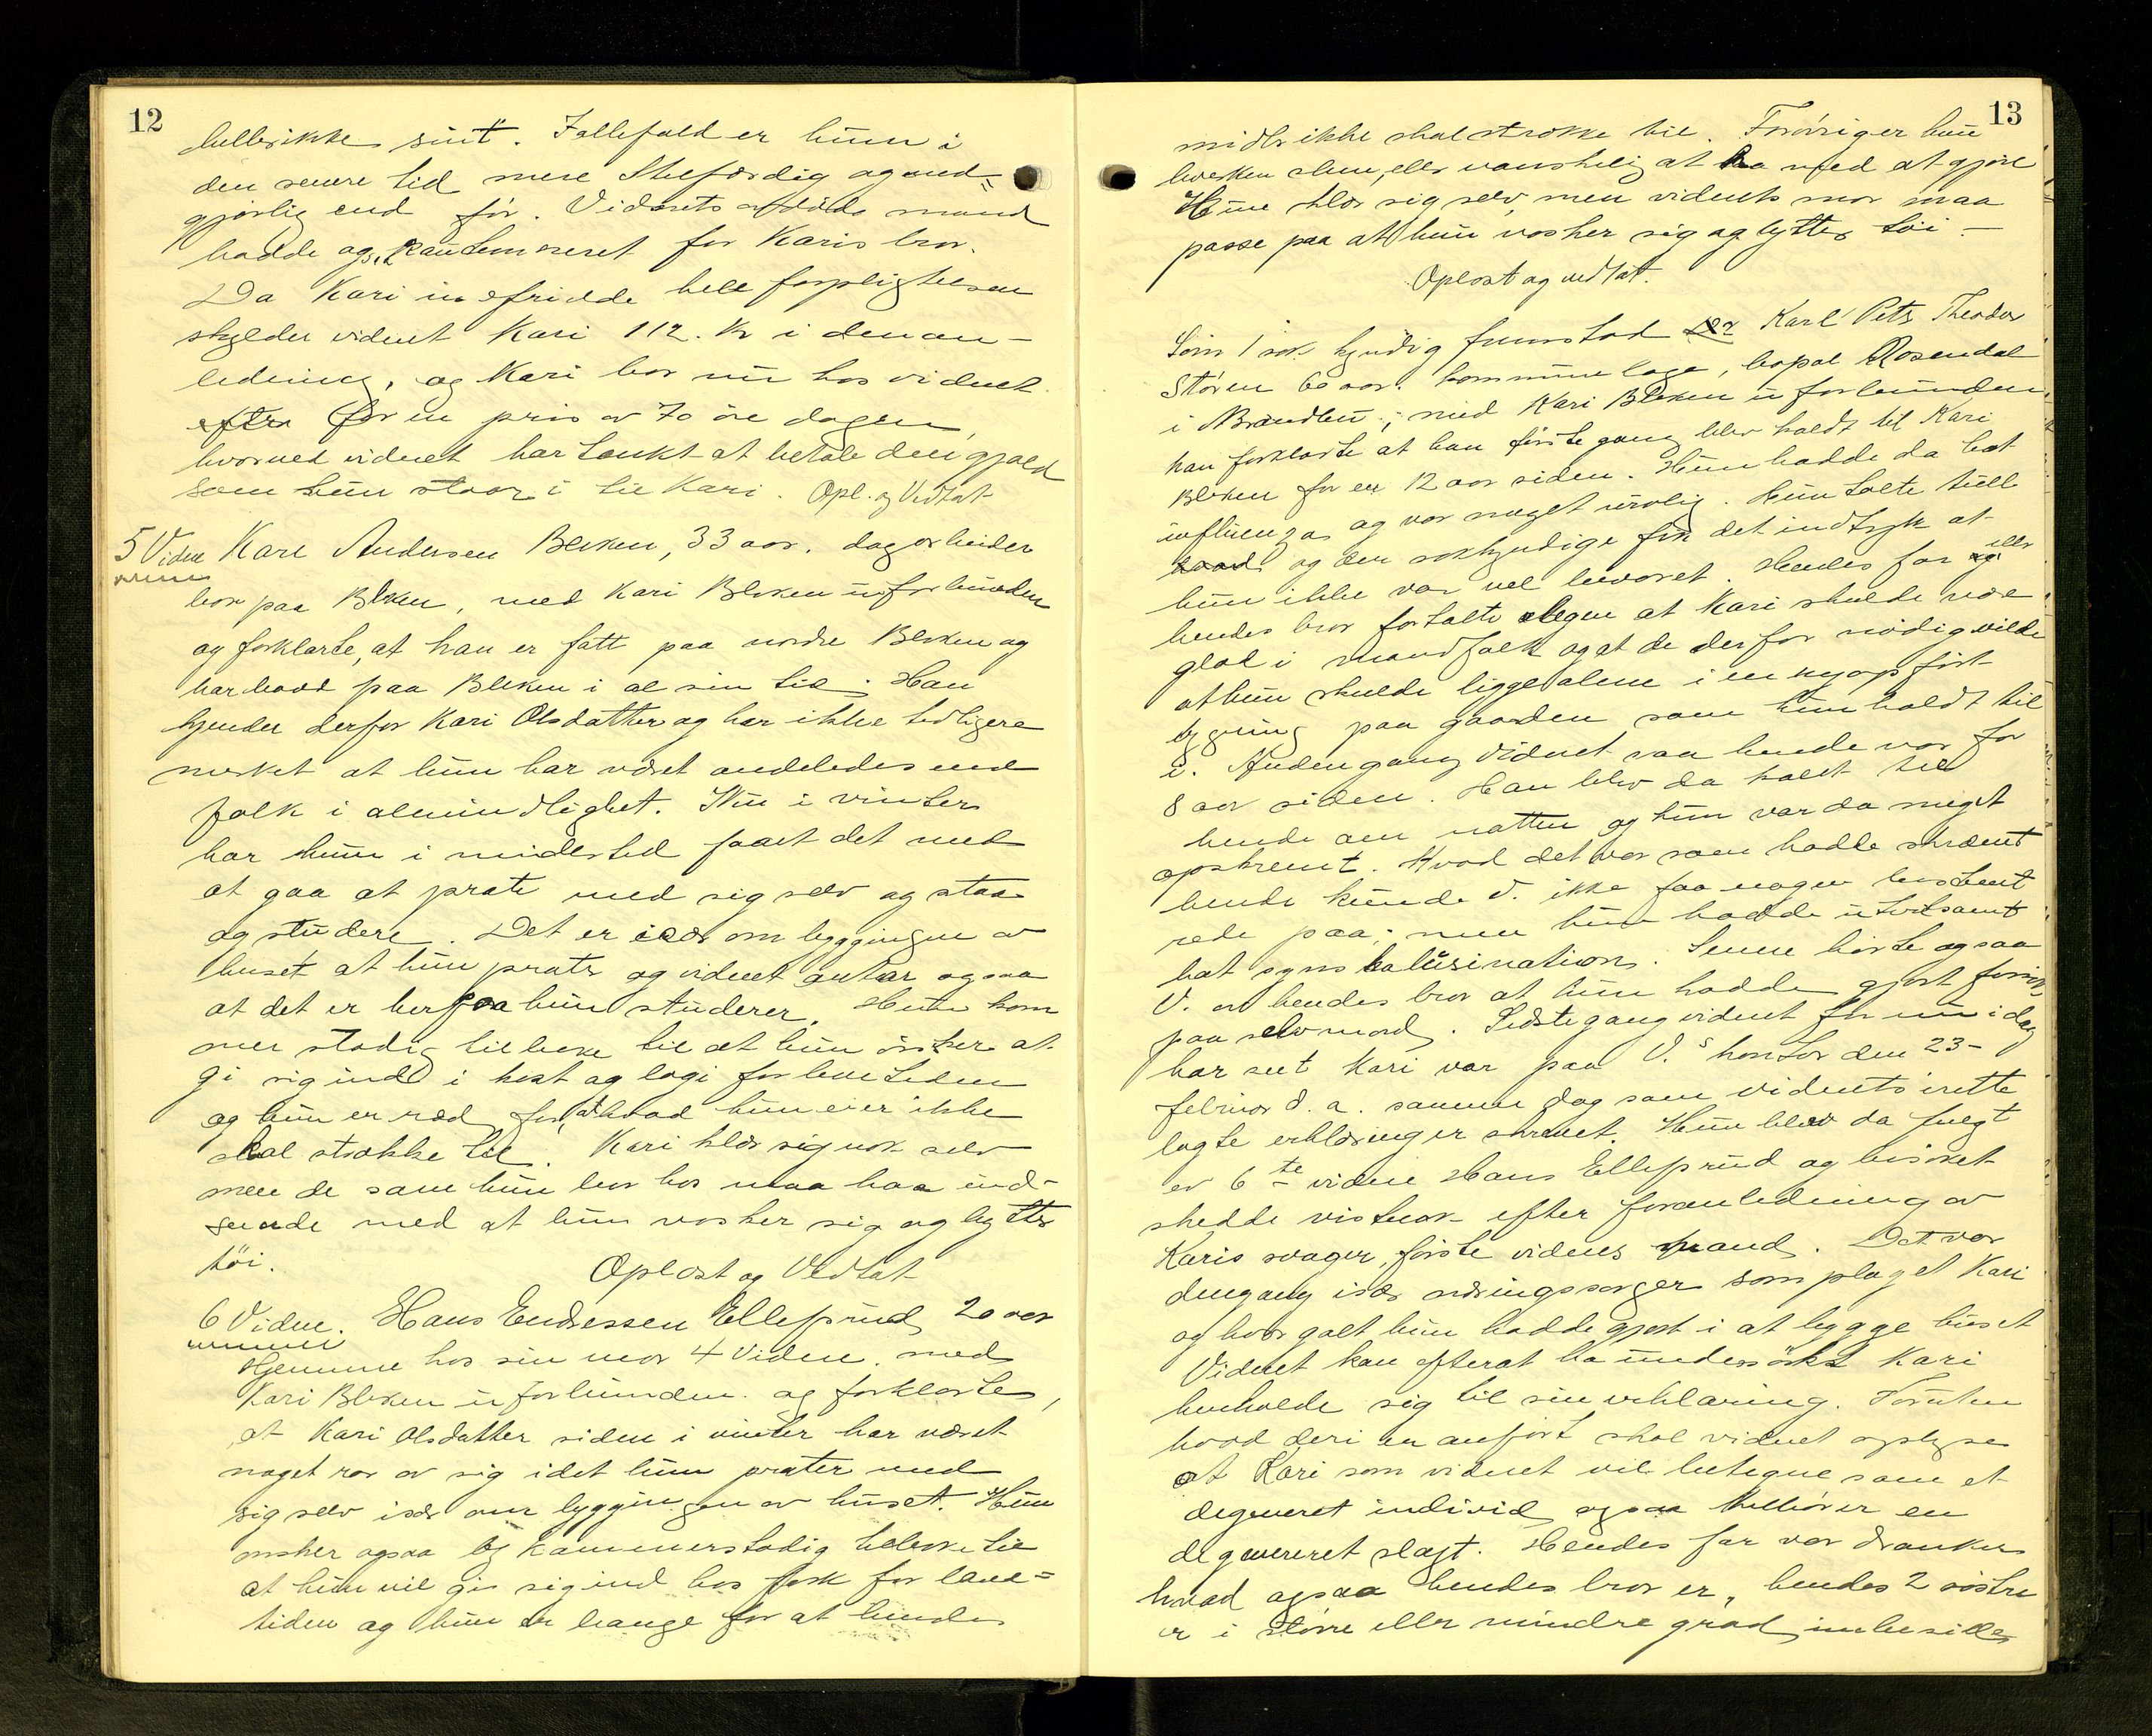 12
hellerikke sint. Ialfefald er hun i
den senere tid mere stilfærdig og med-
gjørlig end før. Vidnets afdøde mand
hadde ogs. kautionneret for Karis bror.
Da Kari indfridde hele forpligtelsen
skylder vidnet Kari 112. kr i den an-
ledning, og Kari bor nu hos vidnet
efter for en pris av 70 øre dagen,
hvorved vidnet har tænkt at betale den gjæld
som hun staar i til Kari. Opl. og Vedtat
5 Vidne Karl Andersen Bleken, 33 aar. dagarbeider
bor paa Bleken, med Kari Bleken uforbunden
og forklarte, at han er født paa nordre Bleken og
har boed paa Bleken i al sin tid. Han
kjender derfor Kari Olsdatter og har ikke tidligere
merket at hun har været anderledes end
folk i almindlighet. Nu i vinter
har hun i midlertid faaet det med
at gaa at prate med sig selv og staa
og studere. Det er især om byggingen av
huset at hun prater og vidnet antar ogsaa
at det er herpaa hun studerer. Hun kom
mer stadig tilbake til at hun ønsker at
gi sig ind i kost og logi for levetiden
og hun er ræd for, at hvad hun eier ikke
skal strække til. Kari klær sig nok selv
men de som hun bor hos maa haa ind-
seende med at hun vasker sig og bytter
tøi.
Oplæst og Vedtat
6 Vidne. Hans Endressen Elleprud 20 aar
Hjemme hos sin mor 4 Vidne. med
Kari Bleken uforbunden. og forklarte,
at Kari Olsdatter siden i vinter har været
noget rar av sig idet hun prater med
sig selv især om byggingen av huset. Hun
ønsker ogsaa og kommer stadig tilbake til
at hun vil gi sig ind hos folk for leve-
tiden og hun er bange for at hendes
13
midler ikke skal strække til. Forøvrig er hun
hverken slem, eller vanskelig at ha med at gjøre
Hun klær sig selv, men vidnets mor maa
passe paa at hun vasker sig og bytter tøi -
Oplæst og vedtat.
Som 1 sak kyndig fremstod Karl Peter Theodor
Støren 60 aar. kommunelæge, bopæl Rosendal
i Brandbu; med Kari Bleken uforbunden,
han forklarte at han første gang blev kaldt til Kari
Bleken for en 12 aar siden. Hun hadde da hat
influenza og var meget urolig. Hun talte tull
og den sakkyndige fik det indtryk at
hun ikke var vel bevaret. Hendes far og eller
hendes bror fortalte lægen at Kari skulde være
glad i mandfolk og at de derfor nødig vilde
at hun skulde ligge alene i en nyopført
bygning paa gaarden som hun holdt til
i. Anden gang vidnet saa hende var for
8 aar siden. Han blev da kaldt til
hende om natten og hun var da meget
opskremt. Hvad det var som hadde skræmt
hende kunde V. ikke faa nogen bestemt
rede paa; men hun hadde utvilsomt
hat syns halusinationer. Senere hørte ogsaa
V. av hendes bror at hun hadde gjort forsøk
paa selvmord. Sidste gang vidnet før nu i dag
har seet Kari var paa V.s kontor den 23-
februar d. a. samme dag som vidnets irette
lagte erklæring er skrevet. Hun blev da fulgt
av 6te vidne Hans Elleprud og besøket
skedde vistnok efter foranledning av
Karis svager, første vidnes mand. Det var
dengang især næringssorger som plaget Kari
og hvor galt hun hadde gjort i at bygge huset
Vidnet kan efterat ha undersøkt Kari
henholde sig til sin erklæring. Foruten
hvad deri er anført skal vidnet oplyse
at Kari som vidnet vil betegne som et
degeneret individ ogsaa tilhører en
degenereret slægt. Hendes far var dranker
hvad ogsaa hendes bror er, hendes 2 søstre
er i større eller mindre grad imbesille